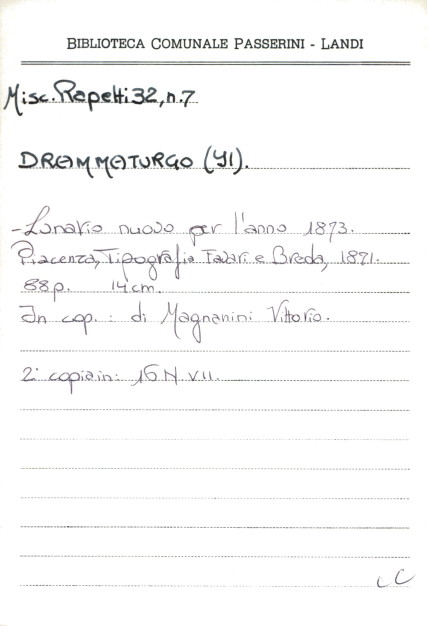 BIBLIOTECA COMUNALE PASSERINI - LANDI
Misc. Rapetti 32, n. 7
DRAMMATURGO (Il).
- Lunario nuovo per l'anno 1873.
Piacenza, Tipografia Favari e Breda, 1871.
88 p. 14 cm.
In cop. : di Magnanini Vittorio.
2ª copia in: 16 N. VII.